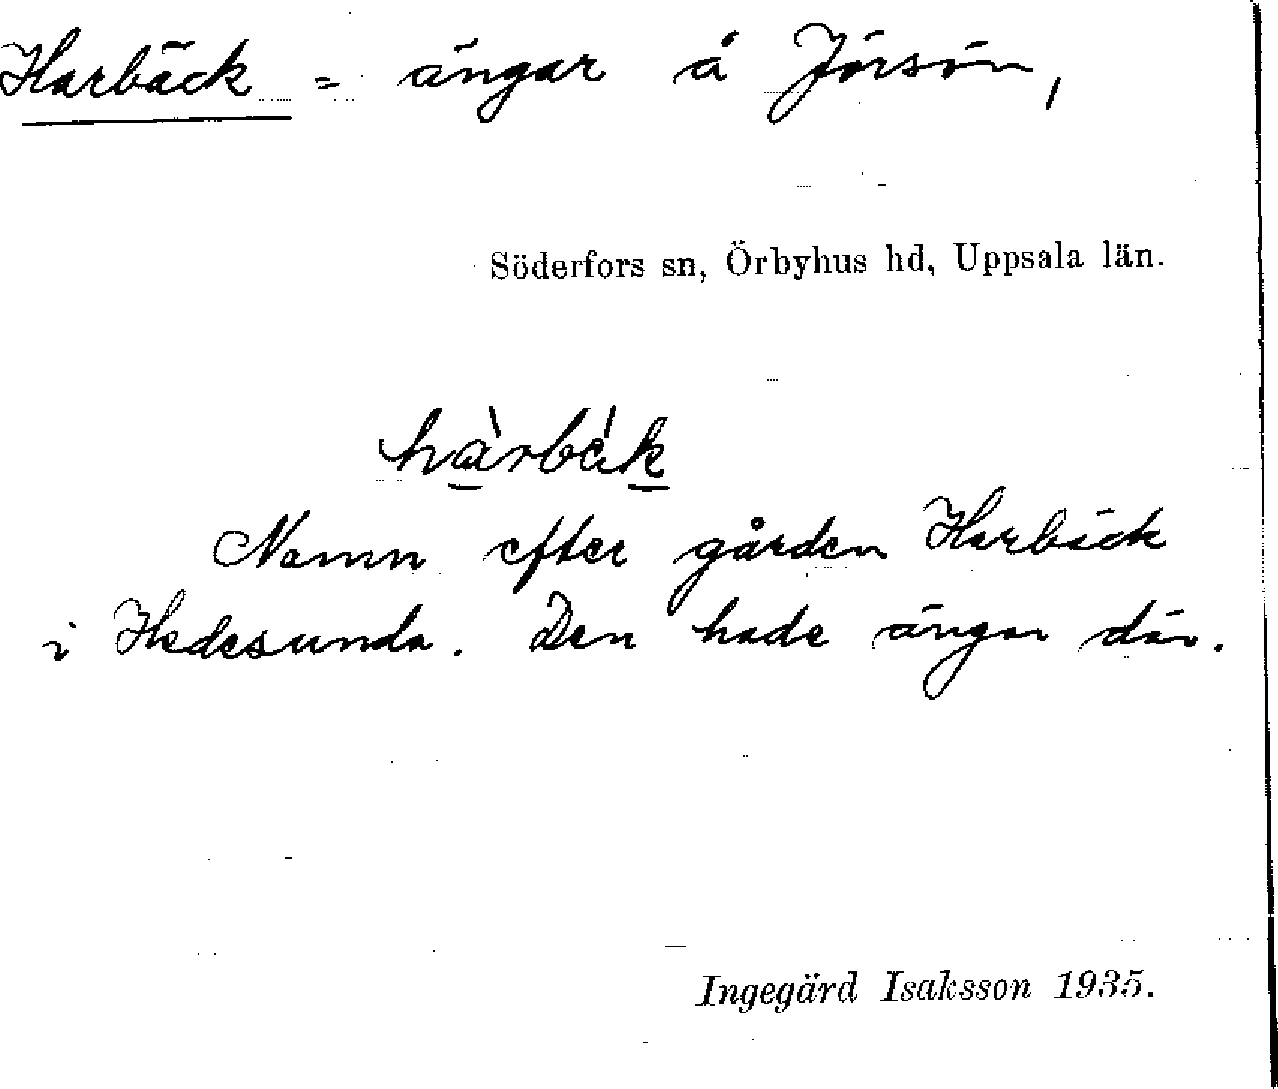 Harbäck = ängar å Jörsön,
Söderfors sn, Örbyhus hd, Uppsala län.
hàrbák
Namn efter gården Harbäck
i Hedesunda. Den hade ängar där.
Ingegärd Isaksson 1935.